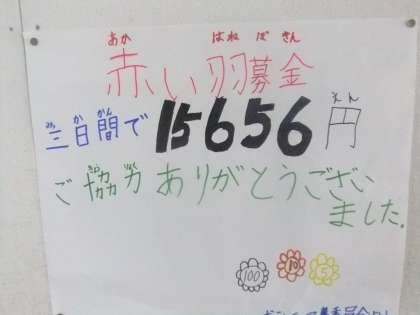 あか はね ぼ きん
赤い羽募金
みっ か かん えん
三日間で 15656円
きょうりょく
ご協力ありがとうござい
ました。
100 10 5